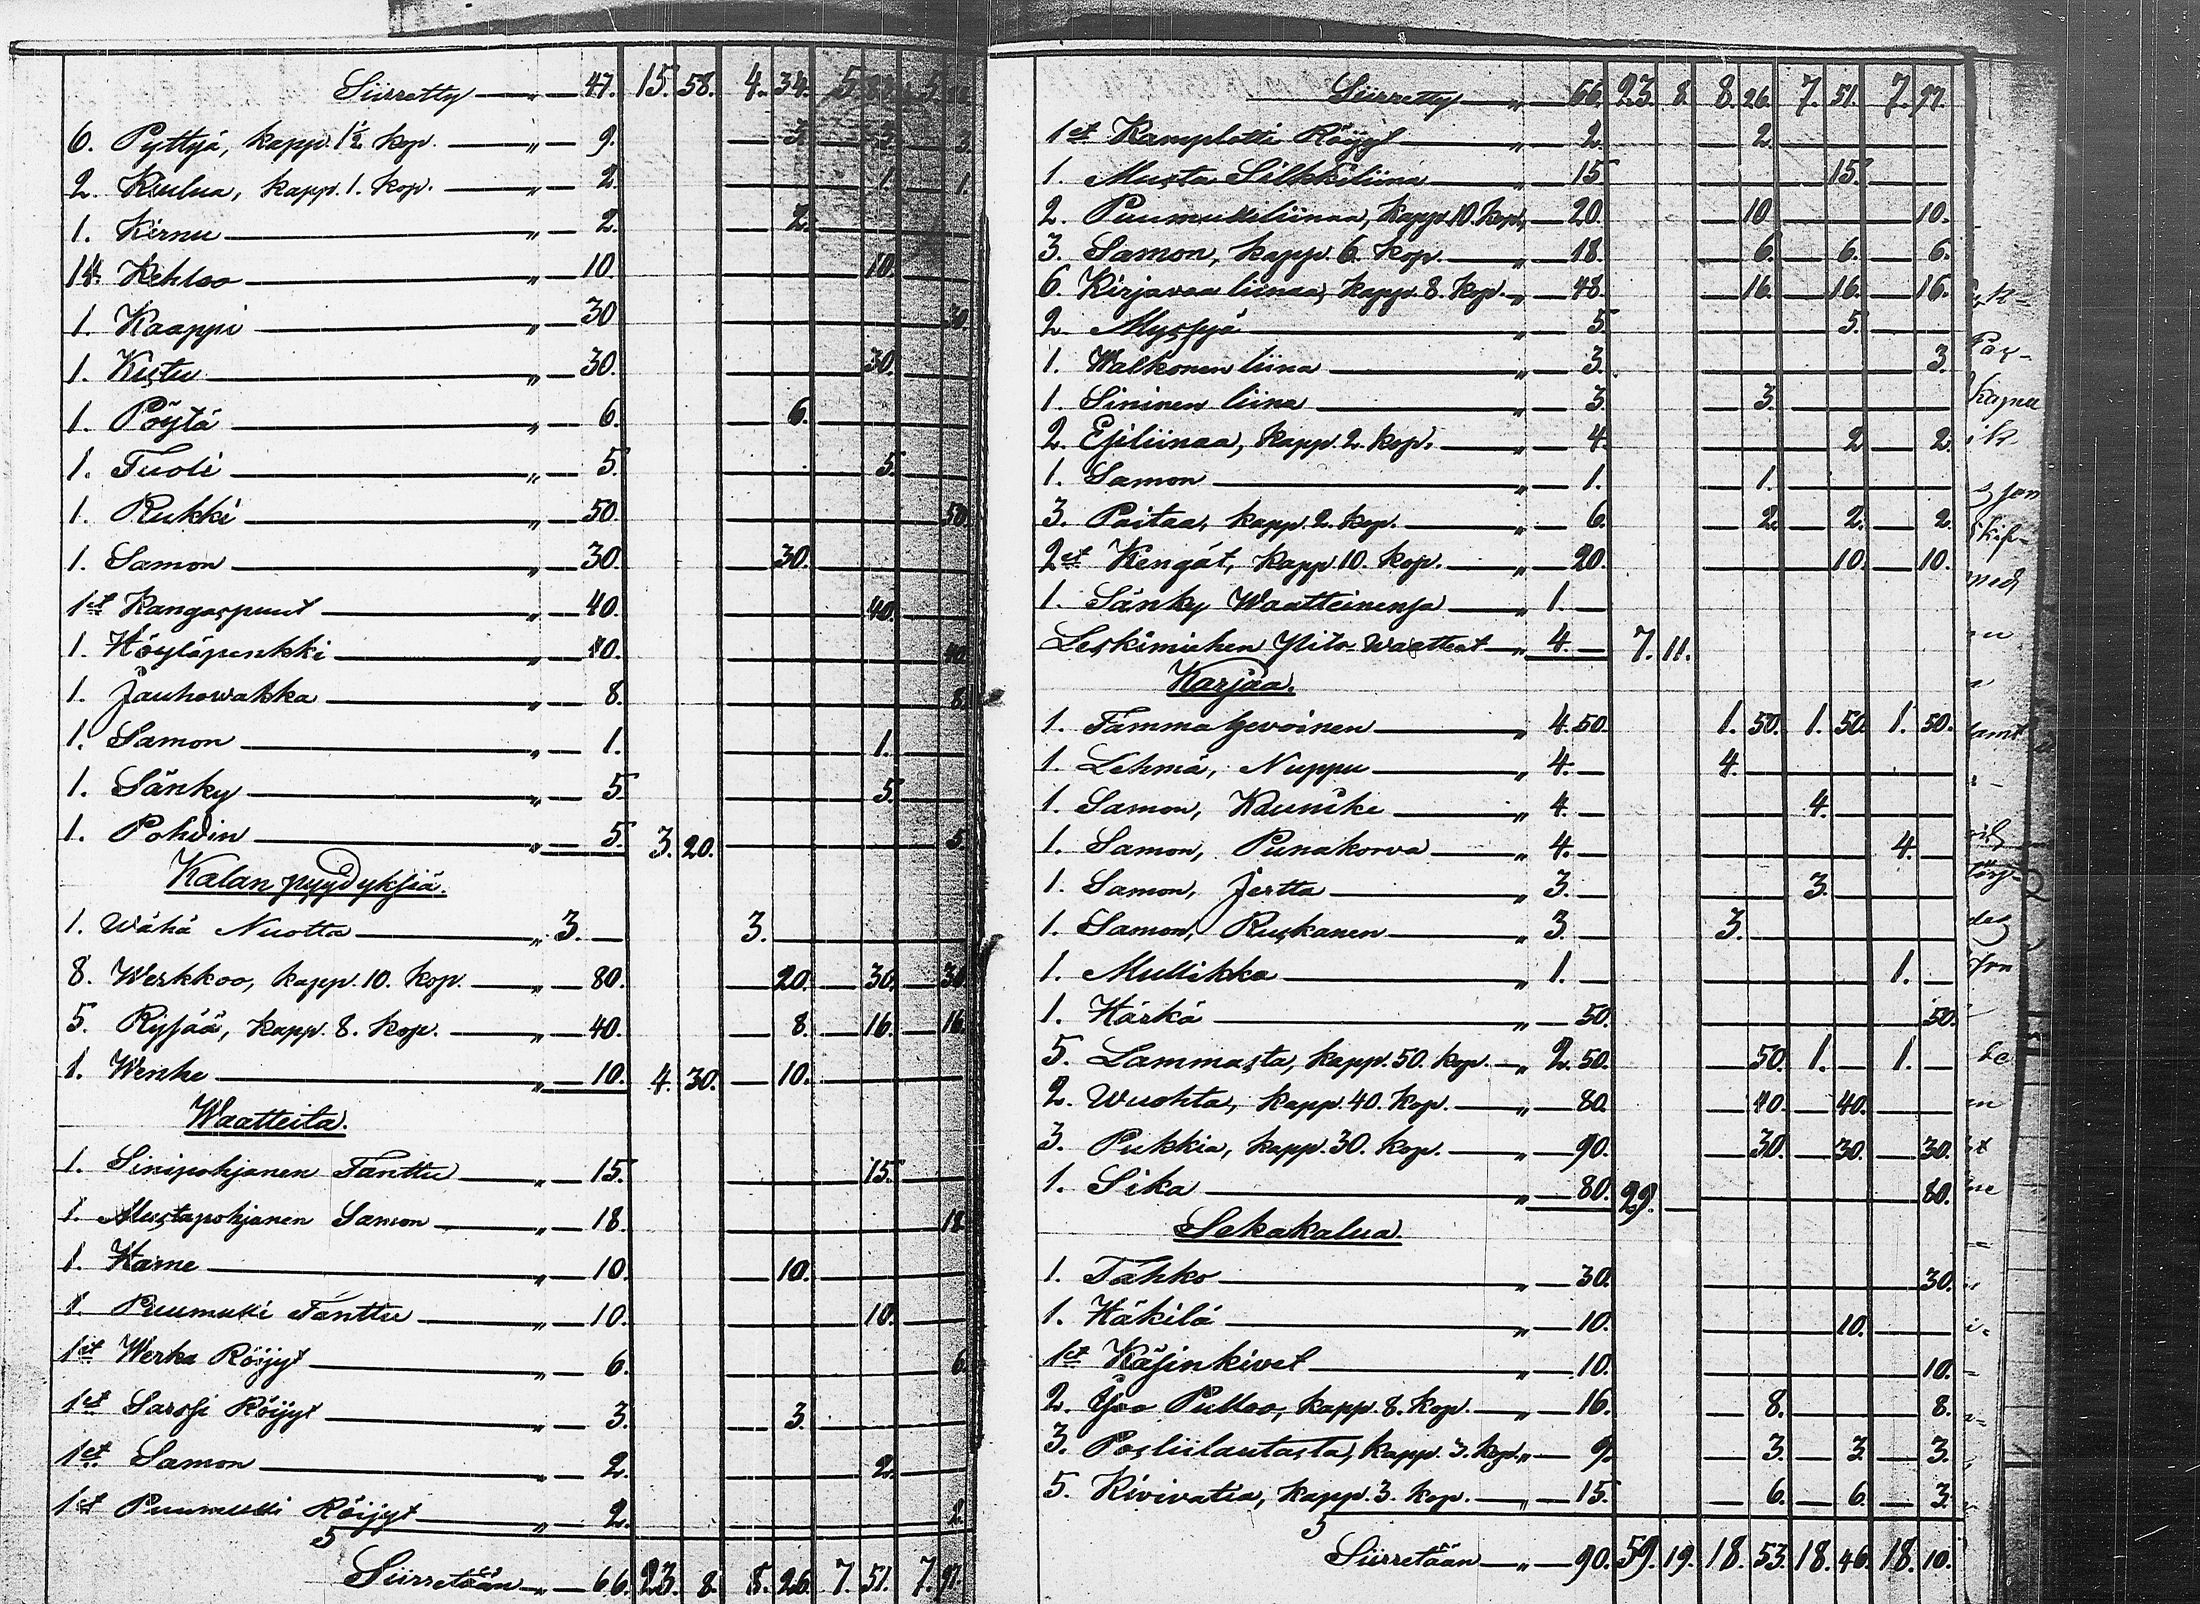 Siirretty — " — 47. 15. 58. 4. 34. 5.
6. Pyttyä, kapp. 1½ kop. — " — 9. — 3. — 3. — 3.
2. Kuulua, kapp. 1. kop. — " — 2. — 1. — 1.
1. Kirnu — " — 2. — 2.
14. Kehloo — " — 10. — 10.
1. Kaappi — " — 30 — 30.
1. Kistu — " — 30. — 30.
1. Pöytä — " — 6. — 6.
1. Tuoli — " — 5. — 5.
1. Rukki — " — 50. — 50.
1. Samon — " — 30. — 30.
1et Kangaspuut — " — 40. — 40.
1. Höyläpenkki — " — 40. — 40.
1. Jauhowakka — " — 8. — 8.
1. Samon — " — 1. — 1.
1. Sänky — " — 5. — 5.
1. Pohdin — " — 5. 3. 20. — 5.
Kalan pyydyksiä.
1. Wähä Nuotta — " 3. — 3. —
8. Werkkoo, kapp. 10. kop. — " — 80. — 20. — 30. — 30.
5. Rysää, kapp. 8. kop. — " — 40. — 8. — 16. — 16.
1. Wenhe — " — 10. 4. 30. — 10.
Waatteita.
1. Sinipohjanen Tanttu — " — 15. — 15.
1. Mustapohjanen Samon — " — 18. — 18.
1. Hame — " — 10. — 10.
1. Puumulli Tänttu — " — 10. — 10.
1et Werka Röijyt — " — 6. — 6.
1et Sarssi Röijyt — " — 3. — 3.
1et Samon — " — 2. — 2.
1et Puumulli Röijyt — " — 2. — 2.
Siirretään — " — 66. 23. 8. 8. 26. 7. 51. 7. 97.
Siirretty — " — 66. 23. 8. 8. 26. 7. 51. 7. 97.
1et Kamplotti Röijyt — " — 2. — 2.
1. Musta Silkkiliina — " — 15. — 15.
2. Puumulliliinaa, kapp. 10. kop. " — 20. — 10. — 10.
3. Samon, kapp. 6. kop. — " — 18. — 6. — 6. — 6.
6. Kirjavaa liinaa, kapp. 8. kop. — " — 48. — 16. — 16. — 16.
2. Myssyä — " — 5. — 5.
1. Walkonen liina — " — 3. — 3.
1. Sininen liina — " — 3. — 3.
2. Esiliinaa, kapp. 2. kop. — " — 4. — 2. — 2.
1. Samon — " — 1. — 1.
3. Paitaa, kapp. 2. kop. — " — 6. — 2. — 2. — 2.
2et Kengät, kapp. 10. kop. — " — 20. — 10. — 10.
1. Sänky Waatteinensa — " 1. —
Leskimiehen Ylito Waatteet — " 4. — 7. 11.
Karjaa.
1. Tamma hevoinen — " 4. 50. 1. 50. 1. 50. 1. 50.
1. Lehmä, Nuppu — " 4. — 4. —
1. Samon, Kaunike — " 4. — 4. —
1. Samon, Punakorva — " 4. — 4. —
1. Samon, Jertta — " 3. — 3. —
1. Samon, Ruskanen — " 3. — 3. —
1. Mullikka — " 1. — 1. —
1. Härkä — " — 50. — 50.
5. Lammasta, kapp. 50. kop. — " 2. 50. — 50. 1. — 1. —
2. Wuohta, kapp. 40. kop. — " — 80. — 40. — 40.
3. Pukkia, kapp. 30. kop. — " — 90. — 30. — 30. — 30.
1. Sika — " — 80. 29. — 80.
Sekakalua.
1. Tahko — " — 30. — 30.
1. Häkilä — " — 10. — 10.
1et Käsinkivet — " — 10. — 10.
2. Isoo Pulloo, kapp. 8. kop. — " — 16. — 8. — 8.
3. Posliilautasta, kapp. 3. kop. " — 9. — 3. — 3. — 3.
5. Kivivatia, kapp. 3. kop. — " — 15. — 6. — 6. — 3.
Siirretään — " — 90. 59. 19. 18. 53. 18. 46. 18. 10.